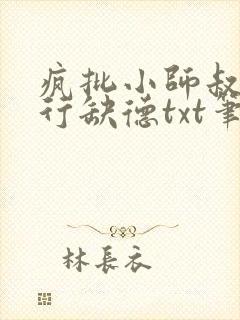 疯批小師叔
行缺德txt筆
林長衣